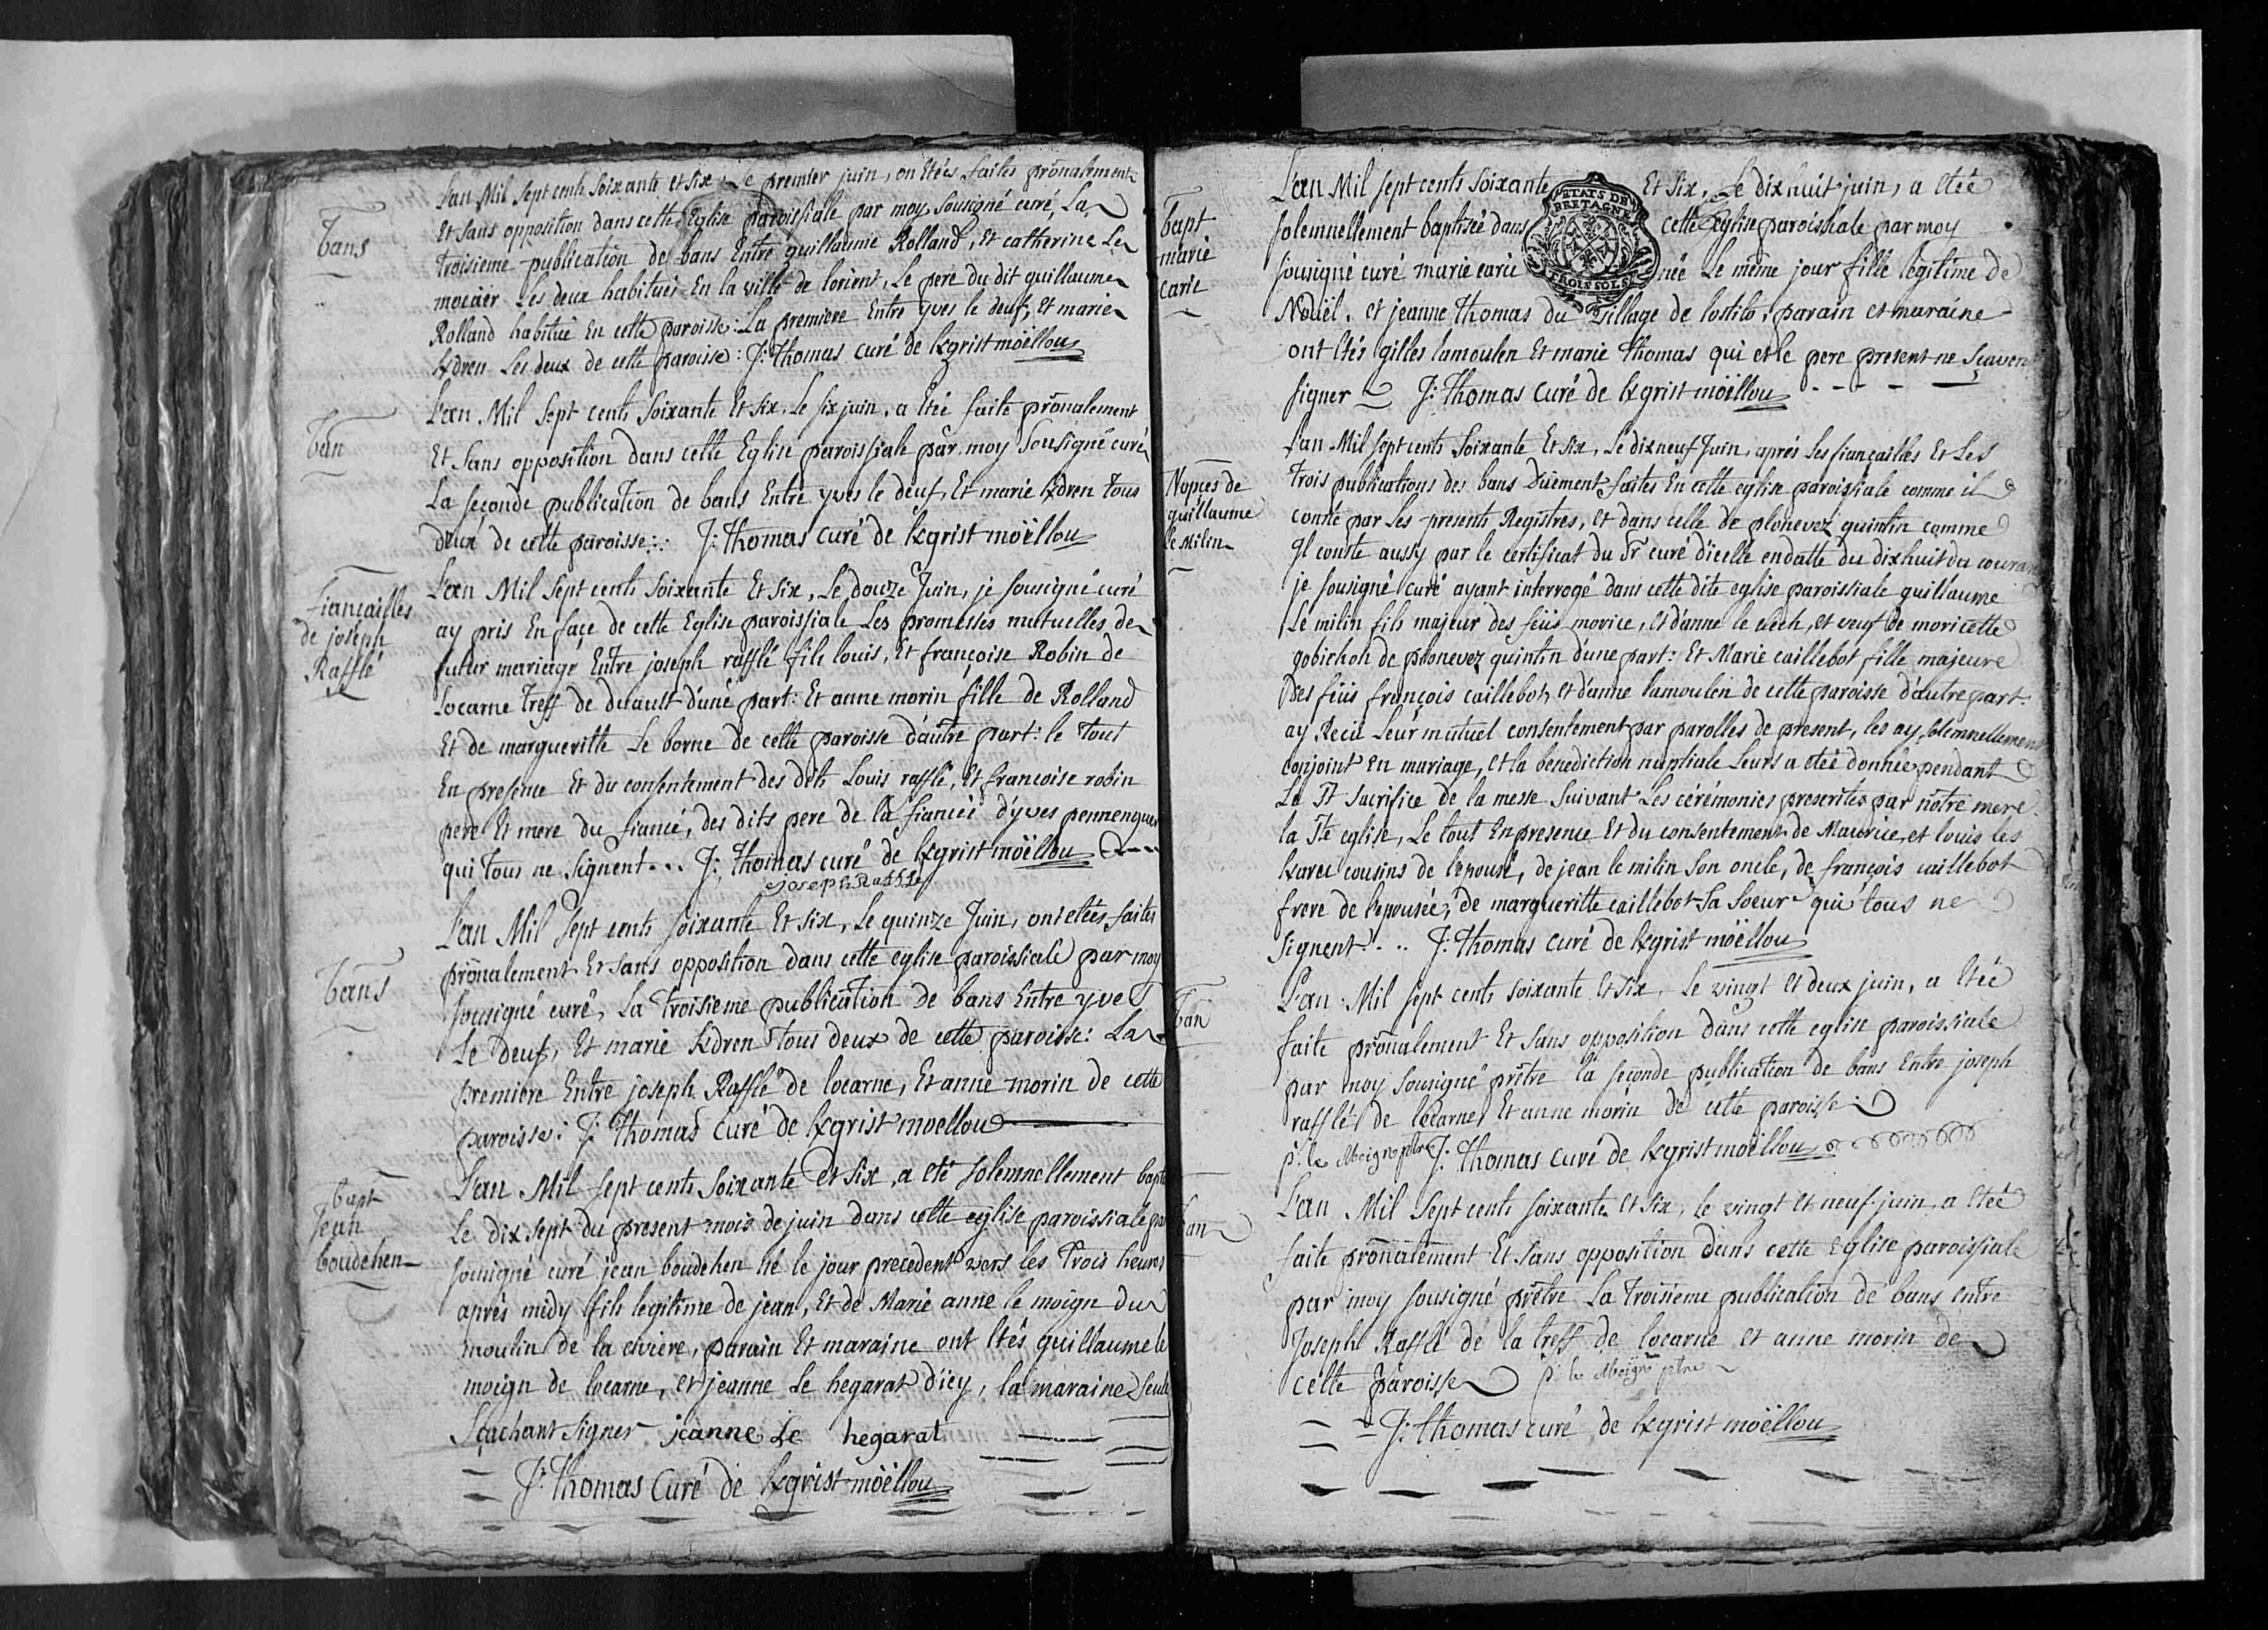 bans
L'an Mil sept cents soixante et six, Le premier juin, on Etées faites prônalement
Et sans opposition dans cette Eglise paroissiale par moy sousigné curé, La
troisieme publication de bans Entre guillaume Rolland, Et catherine Le
mocaër Les deux habitués En la ville de lorient, Le pere du dit guillaume
Rolland habitué En cette paroisse: La premiere Entre yves le deuf, Et marie
kdren Les deux de cette paroisse: J: thomas curé de kgrist möellou
ban
L'an Mil sept cents soixante Et six, Le six juin, a Etée faite prônalement
Et sans opposition dans cette Eglise paroissiale par moy sousigné curé
La seconde publication de bans Entre yves le deuf, Et marie kdren tous
deux de cette paroisse: J: thomas curé de kgrist möellou
fiançailles
de joseph
Rafflé
L'an Mil sept cents soixante Et six, Le douze Juin, je sousigné curé
ay pris En façe de cette Eglise paroissiale Les promesses mutuelles de
futur mariage Entre joseph rafflé fils louis, Et françoise Robin de
Locarne treff de duault d'une part: Et anne morin fille de Rolland
Et de margueritte Le borne de cette paroisse d'autre part: le tout
En presence Et du consentement des dits Louis rafflé, Et francoise robin
pere Et mere du fiancé, des dits pere de la fiancée d'yves pennenguer
qui tous ne signent... J: thomas curé de kgrist möellou
joseph Rafflé
bans
L'an Mil sept cents soixante Et six, Le quinze Juin, ont etées faites
prônalement Et sans opposition dans cette eglise paroissiale par moy
sousigné curé, La troisieme publication de bans Entre yve
Le deuf, Et marie kdren tous deux de cette paroisse: La
premiere Entre joseph Rafflé de locarne, Et anne morin de cette
paroisse: J: thomas Curé de kgrist moellou
bapt
jean
boudehen
L'an Mil sept cents soixante Et six, a eté solemnellement bapt
Le dix sept du present mois de juin dans cette eglise paroissiale par
sousigné curé jean boudehen né le jour precedent vers les trois heures
après midy fils legitime de jean, Et de Marie anne le moign du
moulin de la riviere, parain Et maraine ont Etés guillaume le
moign de locarne, et jeanne Le hegarat d'icy, la maraine seule
Scachant signer jeanne Le hegarat
J: thomas Curé de kgrist möellou
bapt
marie
carie
L'an Mil sept cents soixante Et six, Le dix huit juin, a Etée
ETATS DE
BRETAGNE
TROIS SOLS
solemnellement baptisée dans cette Eglise paroissiale par moy
sousigné curé marie carie née Le même jour fille legitime de
Noüel, et jeanne thomas du village de lostilo, parain et maraine
ont Etés gilles lamoulen Et marie thomas qui et le pere present ne Scaven
signer J: thomas Curé de kgrist möellou
Nopces de
guillaume
le milin
L'an Mil sept cents soixante Et six, Le dix neuf Juin, après Les fiançailles Et Les
trois publications des bans Duëment faites En cette eglise paroissiale comme il
conste par Les presents Registres, et dans celle de plonevez quintin comme
Il conste aussy par le certificat du Sr curé d'icelle en datte du dix huit du courant
je sousigné curé ayant interrogé dans cette dite eglise paroissiale guillaume
Le milin fils majeur des feüs morice, Et d'anne le cuech, et veuf de moricette
gobichon de plonevez quintin d'une part: Et Marie caillebot fille majeure
Des feüs françois caillebot, et d'anne lamoulen de cette paroisse d'autre part:
ay Recü Leur mutuel consentement par parolles de present, les ay solemnellement
conjoint En mariage, et la benediction nuptiale Leurs a etée donnée pendant
Le St sacrifice de la messe suivant Les cérémonies prescrites par nôtre mere
la Ste eglise, Le tout En presence Et du consentement de Maurice, et louis les
kavec cousins de l'epousé, de jean le milin son oncle, de françois caillebot
frere de l'epousée, de margueritte caillebot Sa Soeur qui tous ne
signent... J: thomas curé de kgrist möellou
ban
L'an Mil sept cents soixante Et six, Le vingt Et deux juin, a Etée
faite prônalement Et sans opposition dans cette eglise paroissiale
par moy sousigné prêtre la seconde publication de bans Entre joseph
rafflé de locarne, Et anne morin de cette paroisse:
p: le Moigne ptre J: thomas curé de kgrist möellou
ban
L'an Mil sept cents soixante et six, le vingt et neuf juin, a Etée
faite prônalement Et sans opposition dans cette Eglise paroissiale
par moy sousigné prêtre La troisieme publication de bans entre
Joseph Rafflé de la treff de locarne et anne morin de
cette paroisse p: le Moigne ptre
J: thomas curé de kgrist möellou